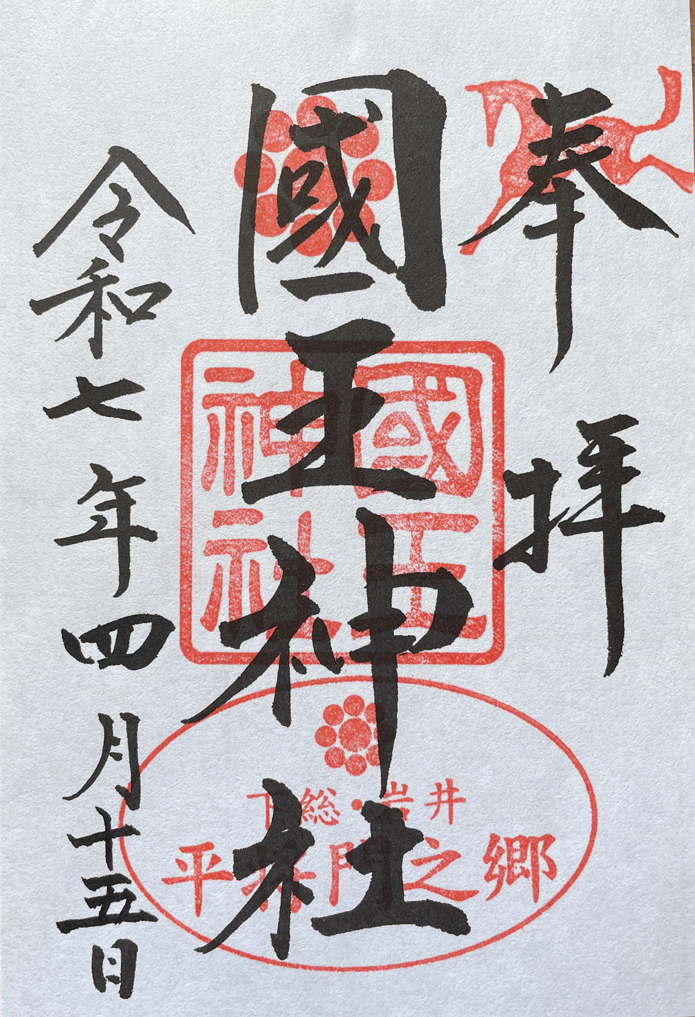 奉拝
國王神社
令和七年四月十五日
國王
神社
下総・岩井
平将門之郷